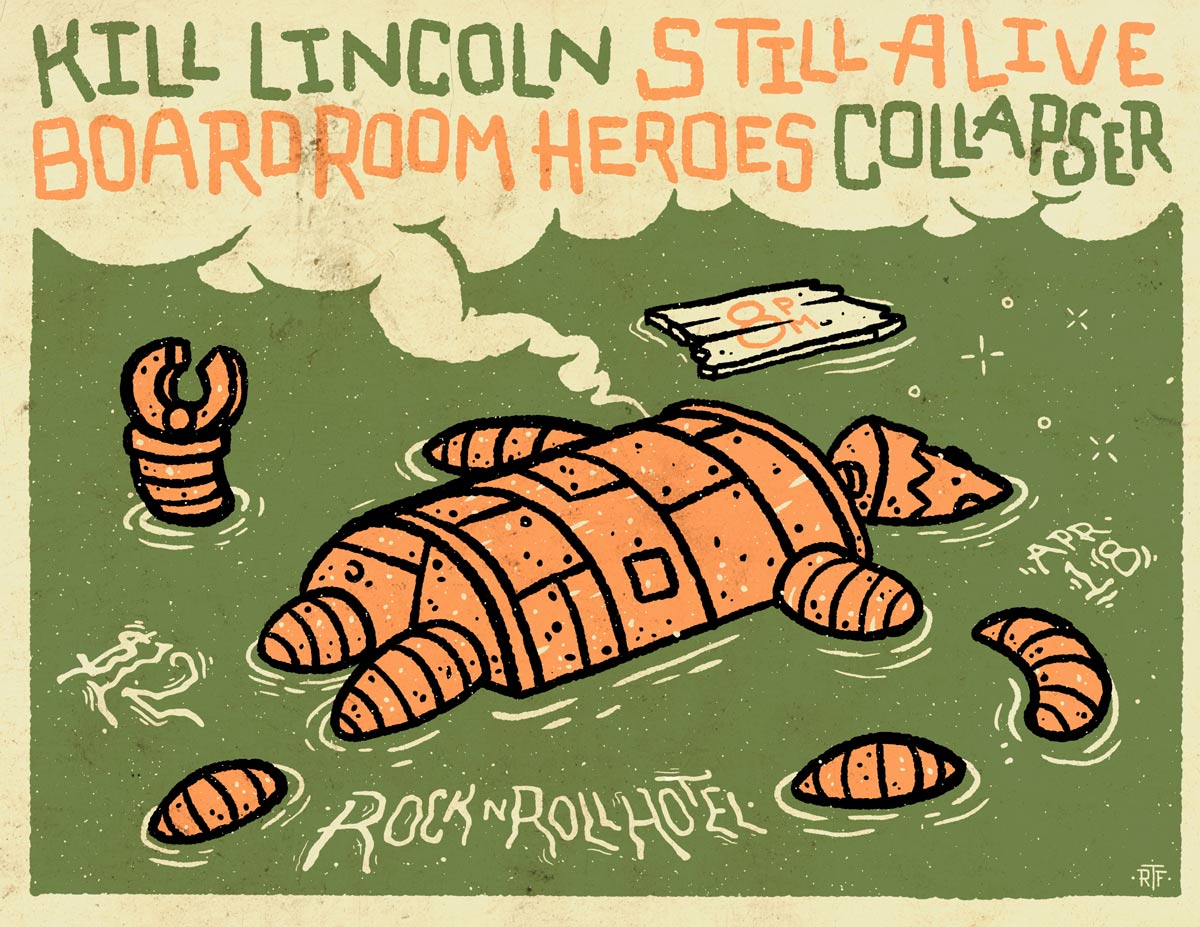 KILL LINCOLN STILL ALIVE
BOARDROOM HEROES COLLAPSER
8PM
APR.
18
$12
ROCK N ROLL HOTEL
RTF